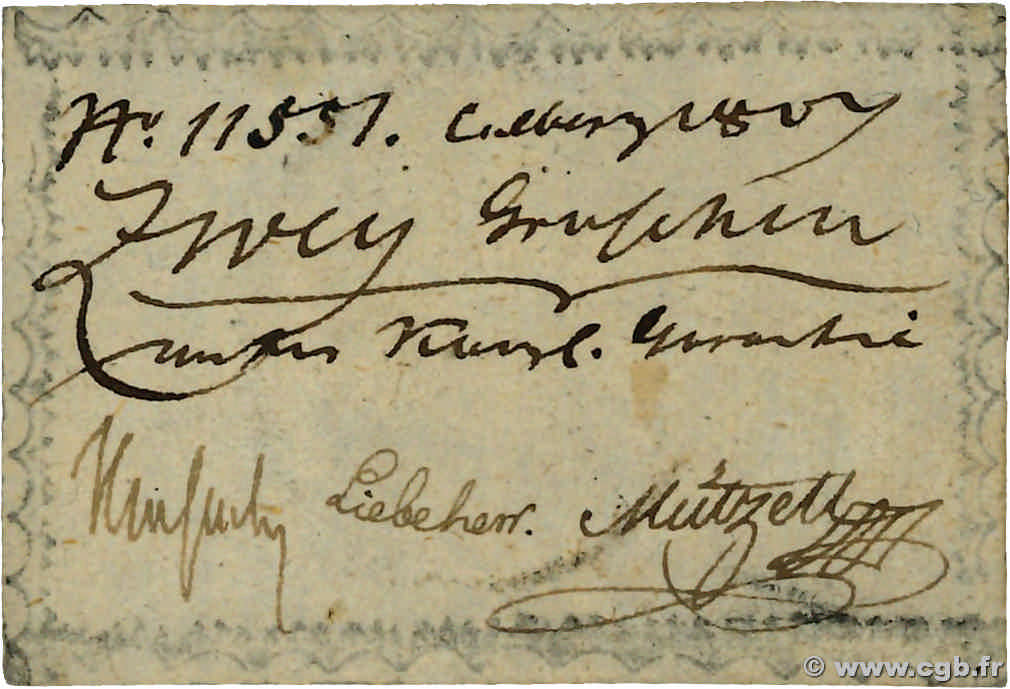 No. 11551. Collberg 1807
Zwey Groschen
unter Königl. Garantie
Liebeherr. Mützell
© www.cgb.fr